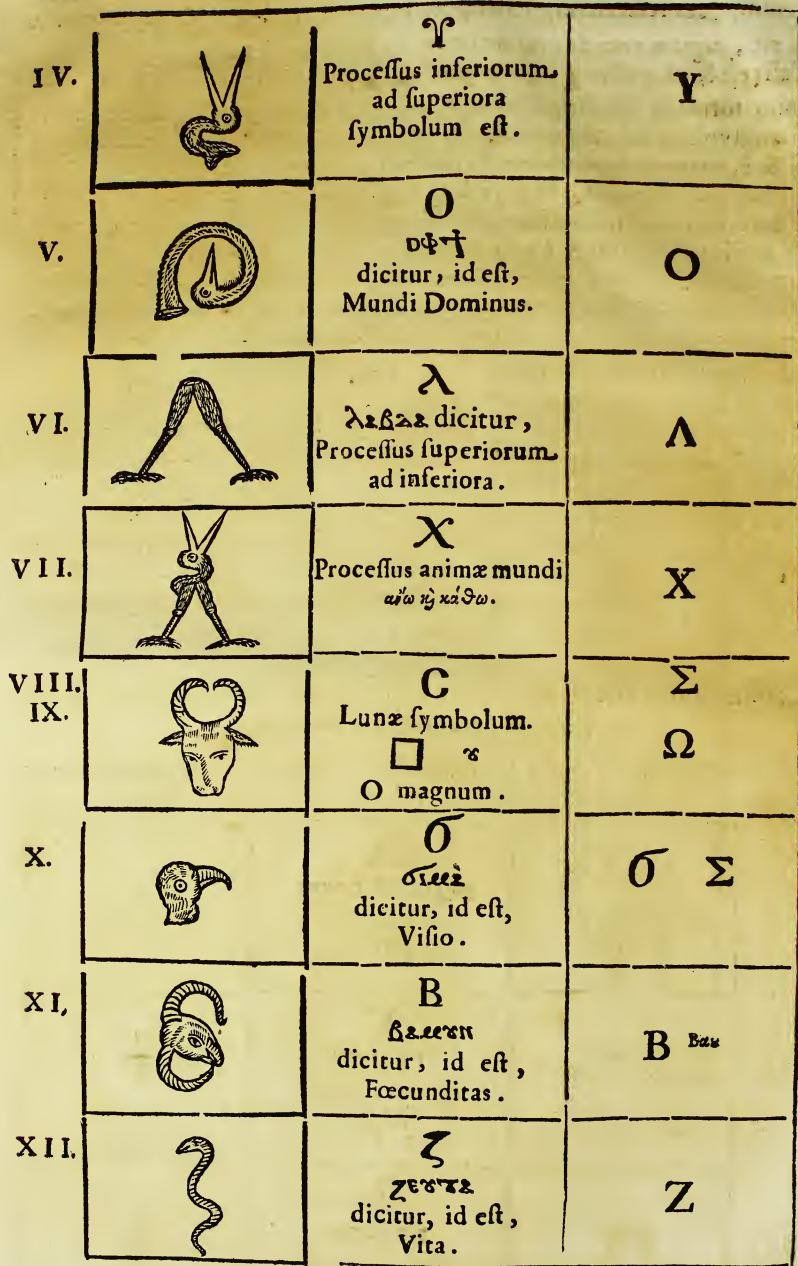 IV.
ϒ
Proceſſus inferiorum
ad ſuperiora
ſymbolum eſt.
Y
V.
O
dicitur, id eſt,
Mundi Dominus.
O
VI.
λ
dicitur,
Proceſſus ſuperiorum
ad inferiora.
Λ
VII.
X
Proceſſus animæ mundi
X
VIII.
IX.
C
Lunæ ſymbolum.
O magnum.
Σ
Ω
X.
σ
dicitur, id eſt,
Viſio.
σ Σ
XI,
B
dicitur, id eſt,
Fœcunditas.
B
XII.
ζ
dicitur, id eſt,
Vita.
Z